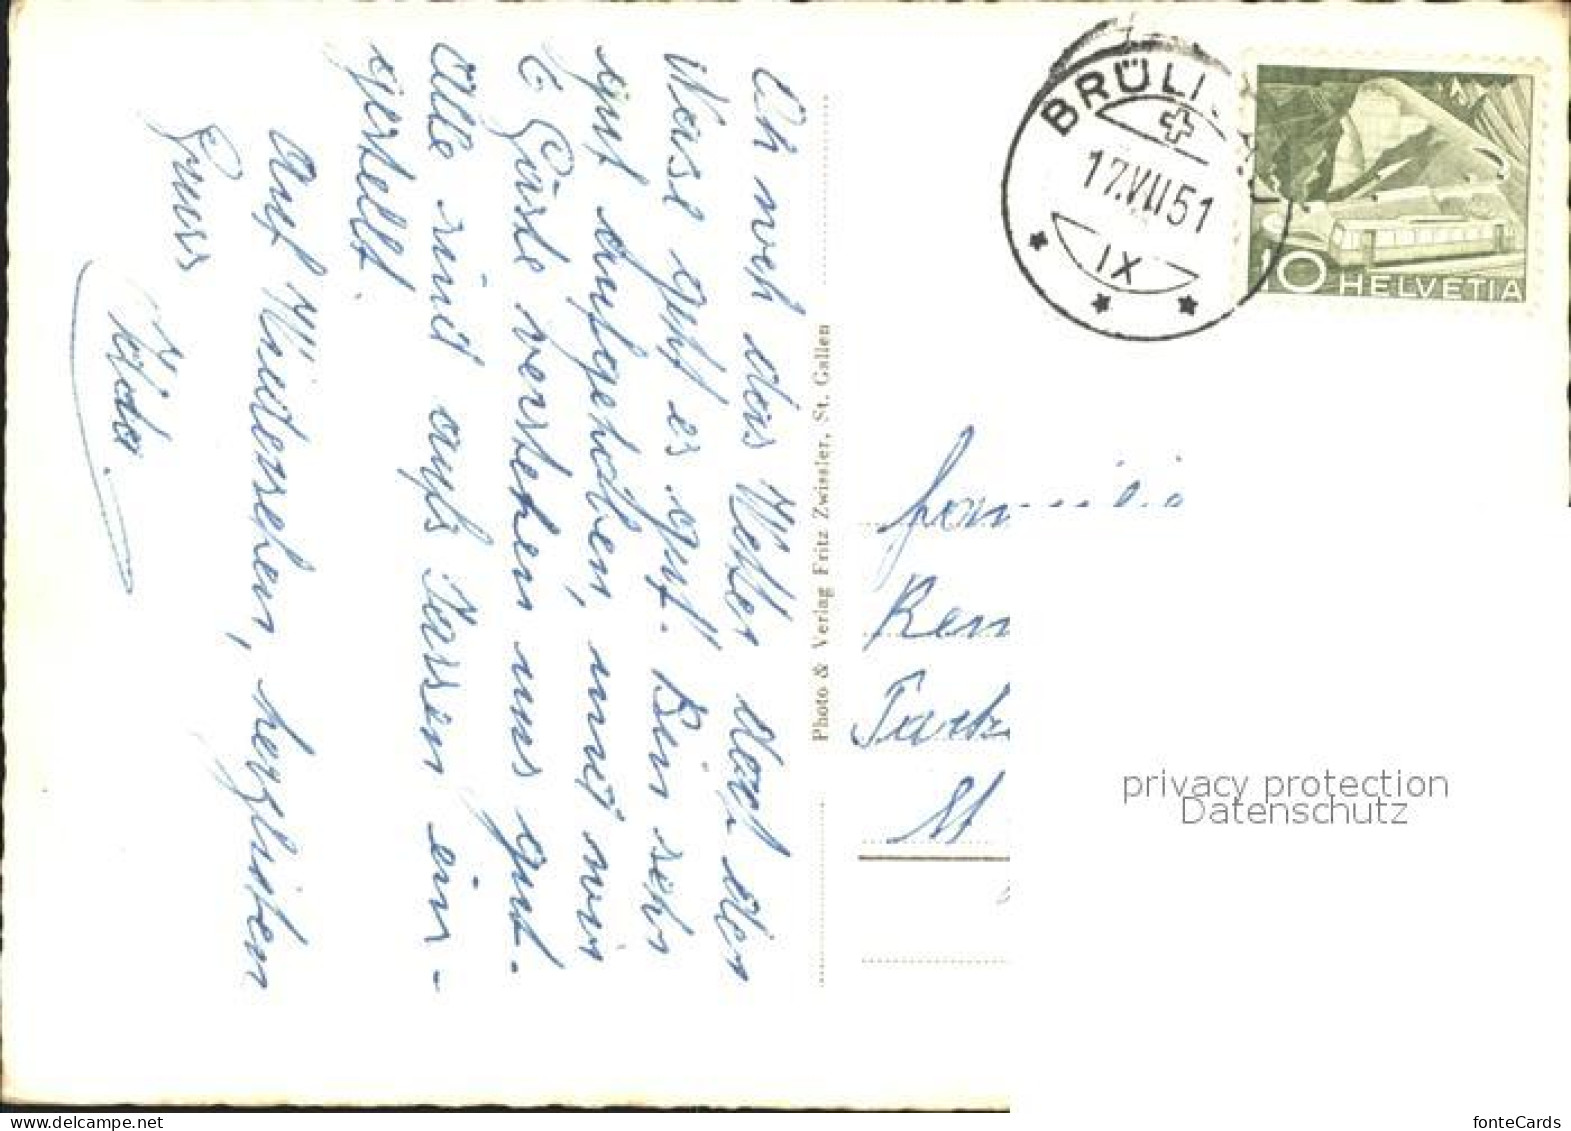 Ich weh das Wetter doch der
Nase geht es gut. Bin sehr
gut aufgehoben, mit wir
6 Gäste verstehen uns gut.
Alle sind aufs Jassen ein-
gestellt.
Auf Wiedersehen, herzlichen
Gruss
Ida.
Photo & Verlag Fritz Zwissler, St. Gallen
BRÜLI
17.VII 51
IX
10 HELVETIA
Familie
St
privacy protection
Datenschutz
fonteCards